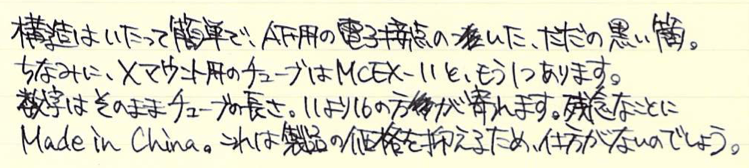 構造はいたって簡単で、AF用の電子接点の着いた、ただの黒い筒。
ちなみに、Xマウント用のチューブはMCEX-11と、もう1つあります。
数字はそのままチューブの長さ。11より16の方が寄れます。残念なことに
Made in China。これは製品の価格を抑えるため、仕方がないのでしょう。